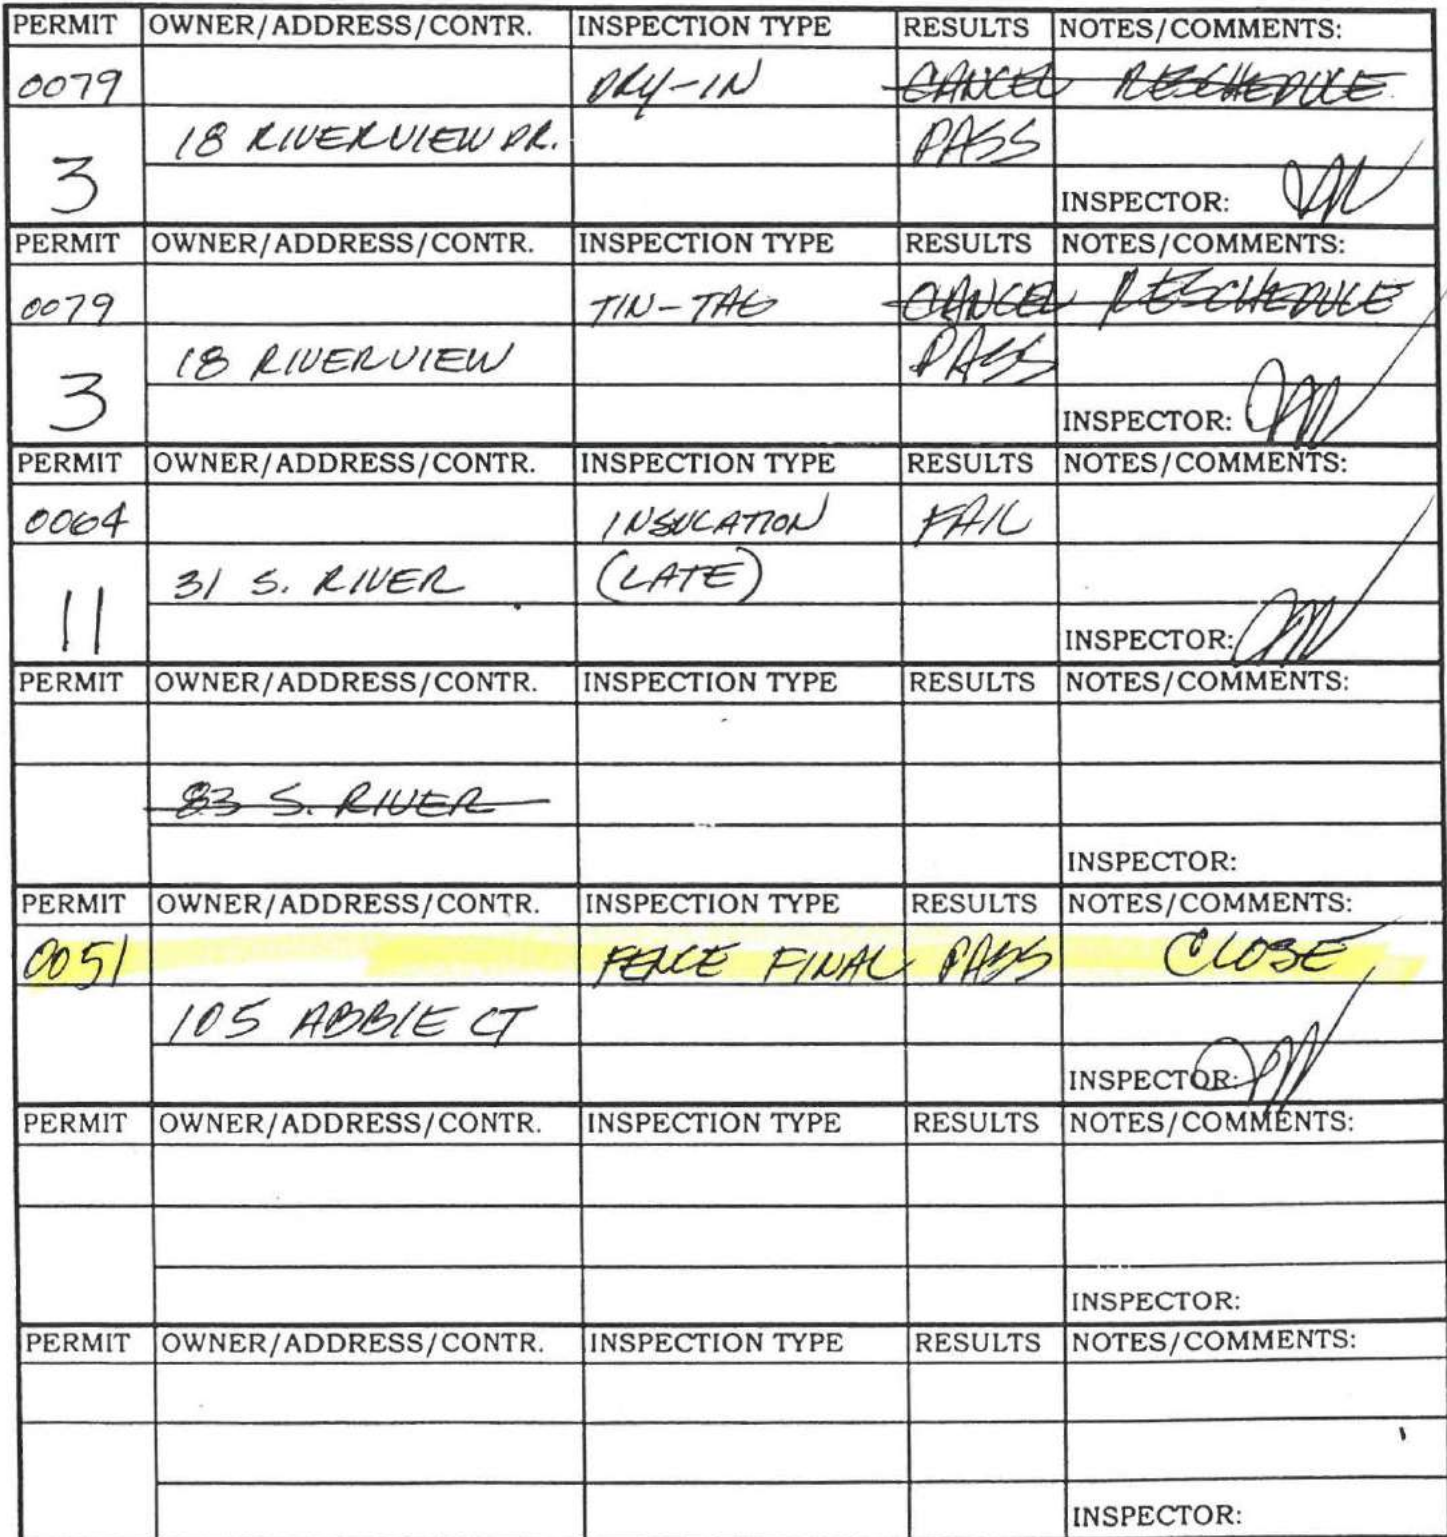 PERMIT OWNER/ADDRESS/CONTR. INSPECTION TYPE RESULTS NOTES/COMMENTS:
0079 DRY-IN CANCEL RESCHEDULE
18 RIVERVIEW DR. PASS
3 INSPECTOR:
PERMIT OWNER/ADDRESS/CONTR. INSPECTION TYPE RESULTS NOTES/COMMENTS:
0079 TIN-TAG CANCEL RESCHEDULE
18 RIVERVIEW PASS
3 INSPECTOR:
PERMIT OWNER/ADDRESS/CONTR. INSPECTION TYPE RESULTS NOTES/COMMENTS:
0064 INSULATION FAIL
31 S. RIVER (LATE)
11 INSPECTOR:
PERMIT OWNER/ADDRESS/CONTR. INSPECTION TYPE RESULTS NOTES/COMMENTS:
83 S. RIVER
INSPECTOR:
PERMIT OWNER/ADDRESS/CONTR. INSPECTION TYPE RESULTS NOTES/COMMENTS:
0051 FENCE FINAL PASS CLOSE
105 ABBIE CT
INSPECTOR:
PERMIT OWNER/ADDRESS/CONTR. INSPECTION TYPE RESULTS NOTES/COMMENTS:
INSPECTOR:
PERMIT OWNER/ADDRESS/CONTR. INSPECTION TYPE RESULTS NOTES/COMMENTS:
INSPECTOR: